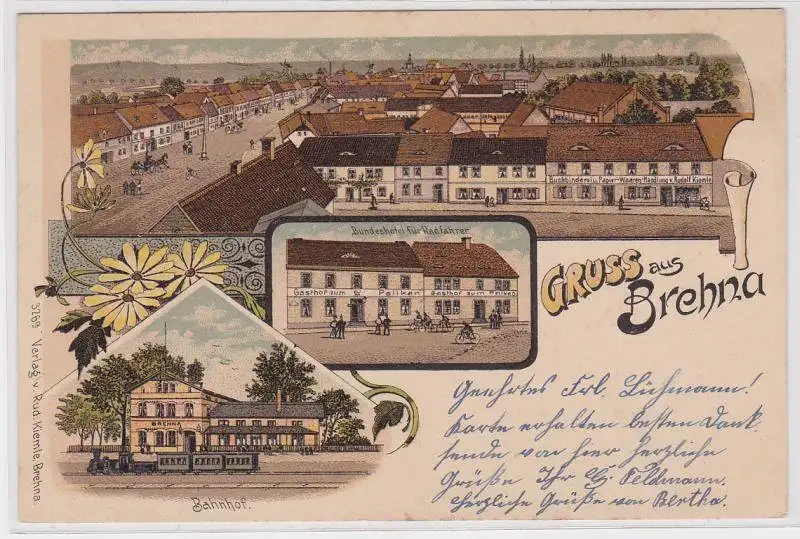 Buchbinderei u. Papier-Waaren-Handlung v. Rudolf Kiemle
Bundeshotel für Radfahrer
Gasthof zum Pelikan Gasthof zum Pelikan
GRUSS aus
Brehna
BREHNA
Bahnhof.
3269 Verlag v. Rud. Kiemle, Brehna.
Geehrtes Frl. Lühmann!
Karte erhalten besten Dank
sende von hier herzliche
Grüße Ihr G. Feldmann.
herzliche Grüße von Bertha.